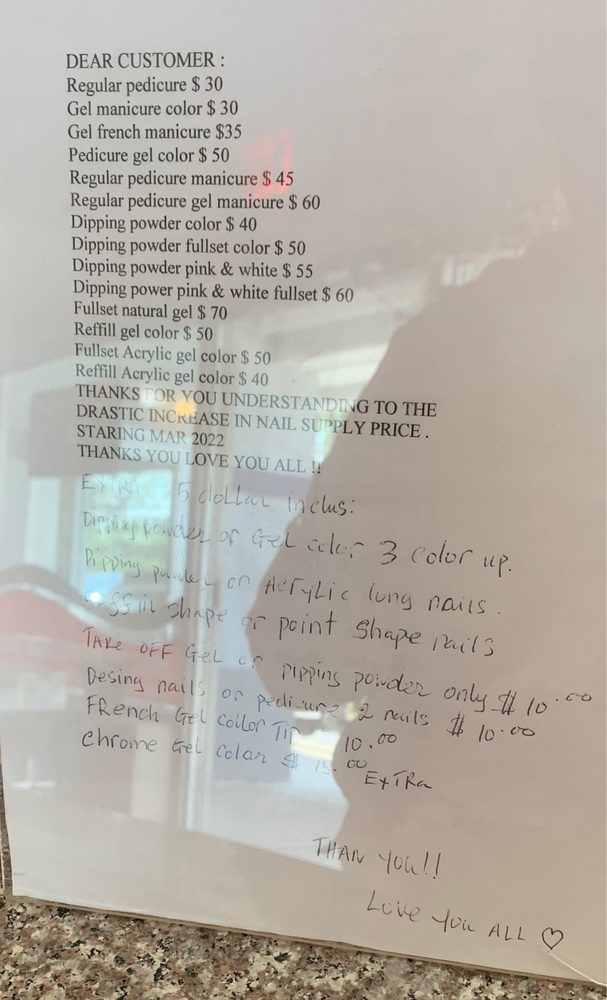 DEAR CUSTOMER :
Regular pedicure $ 30
Gel manicure color $ 30
Gel french manicure $35
Pedicure gel color $ 50
Regular pedicure manicure $ 45
Regular pedicure gel manicure $ 60
Dipping powder color $ 40
Dipping powder fullset color $ 50
Dipping powder pink & white $ 55
Dipping power pink & white fullset $ 60
Fullset natural gel $ 70
Reffill gel color $ 50
Fullset Acrylic gel color $ 50
Reffill Acrylic gel color $ 40
THANKS FOR YOU UNDERSTANDING TO THE
DRASTIC INCREASE IN NAIL SUPPLY PRICE .
STARING MAR 2022
THANKS YOU LOVE YOU ALL !!
EXTRA 5 dollar inclus:
Dipping powder or Gel color 3 color up.
Dipping powder or Acrylic long nails.
shape or point shape nails
TAKE OFF GEL or Dipping powder only $ 10.00
Desing nails or pedicure 2 nails $ 10.00
FRench Gel collor Tip 10.00
Chrome Gel color $ 15.00 ExTRa
THAN YOU!!
Love You ALL ♡